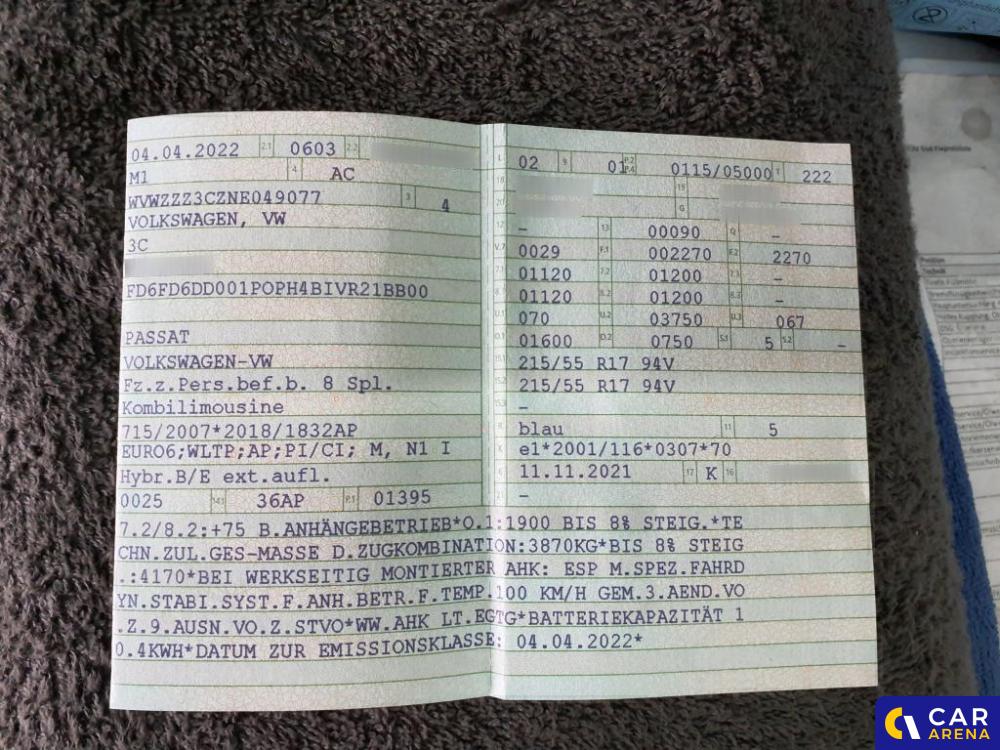 04.04.2022 2.1 0603 2.2
M1 4 AC
WVWZZZ3CZNE049077 3 4
VOLKSWAGEN, VW
3C
FD6FD6DD001POPH4BIVR21BB00
PASSAT
VOLKSWAGEN-VW
Fz.z.Pers.bef.b. 8 Spl.
Kombilimousine
715/2007*2018/1832AP
EURO6;WLTP;AP;PI/CI; M, N1 I
Hybr.B/E ext.aufl.
0025 14.1 36AP P.1 01395
L 02 9 01 P.2 P.4 0115/05000 T 222
18 19
20 G
12 – 13 00090 Q –
V.7 0029 F.1 002270 F.2 2270
7.1 01120 7.2 01200 7.3 –
8.1 01120 8.2 01200 8.3 –
U.1 070 U.2 03750 U.3 067
O.1 01600 O.2 0750 S.1 5 S.2 –
15.1 215/55 R17 94V
15.2 215/55 R17 94V
15.3 –
R blau 11 5
K e1*2001/116*0307*70
6 11.11.2021 17 K 16
21 –
7.2/8.2:+75 B.ANHÄNGEBETRIEB*O.1:1900 BIS 8% STEIG.*TE
CHN.ZUL.GES-MASSE D.ZUGKOMBINATION:3870KG*BIS 8% STEIG
.:4170*BEI WERKSEITIG MONTIERTER AHK: ESP M.SPEZ.FAHRD
YN.STABI.SYST.F.ANH.BETR.F.TEMP.100 KM/H GEM.3.AEND.VO
.Z.9.AUSN.VO.Z.STVO*WW.AHK LT.EGTG*BATTERIEKAPAZITÄT 1
0.4KWH*DATUM ZUR EMISSIONSKLASSE: 04.04.2022*
CAR
ARENA